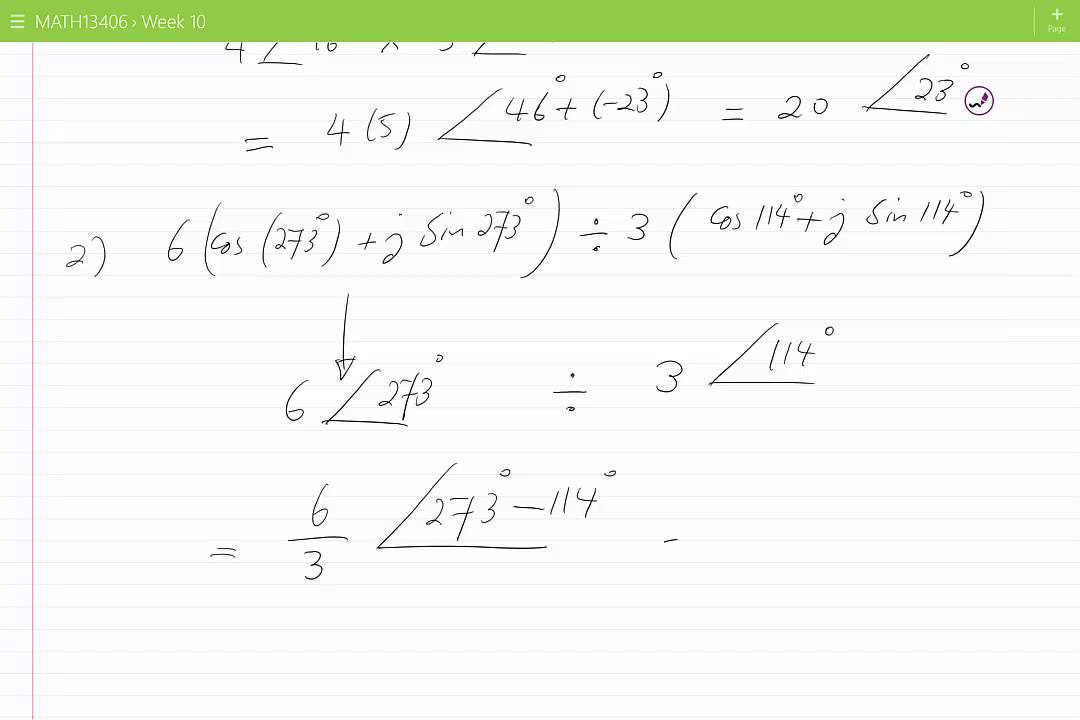 MATH13406 › Week 10
Page
4 ∠
= 4 (5) ∠46° + (-23°) = 20 ∠23°
2) 6 (cos (273°) + j sin 273°) ÷ 3 (cos 114° + j sin 114°)
6 ∠273° ÷ 3 ∠114°
= 6/3 ∠273° - 114° -